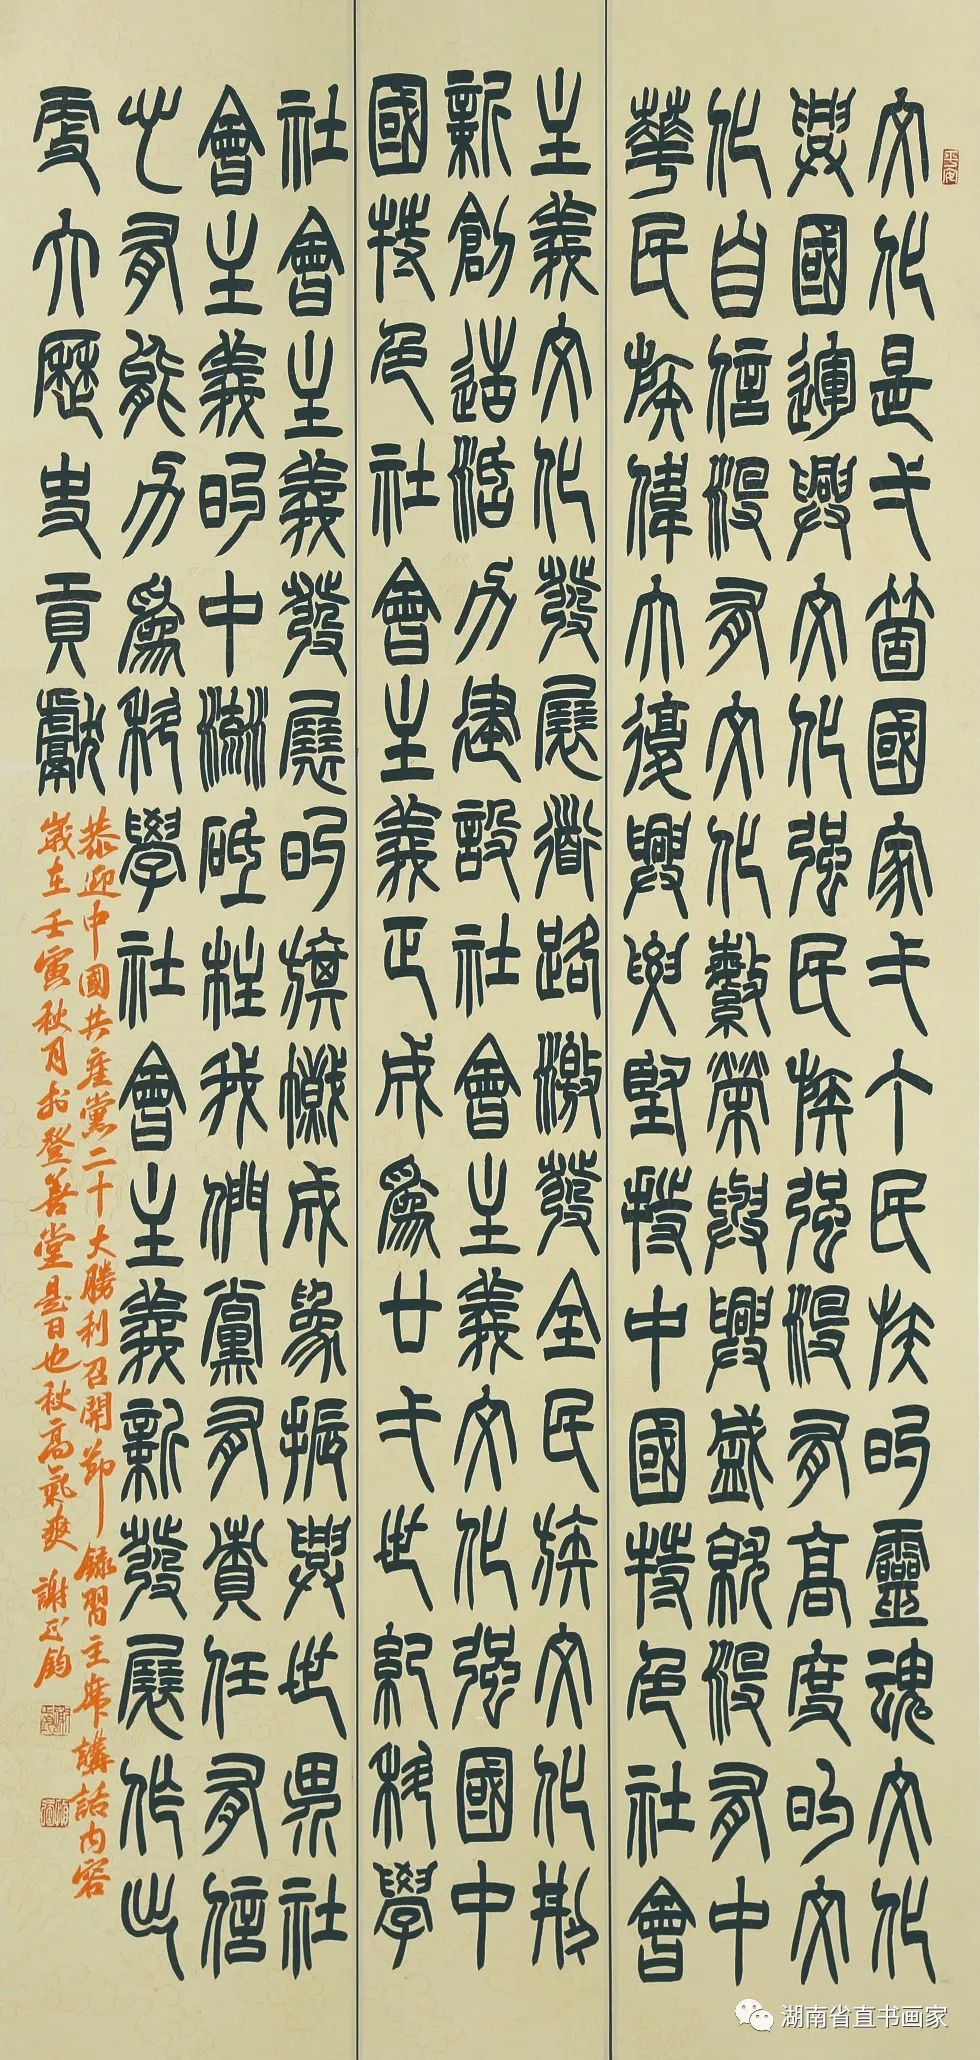 平安
文化是弌箇國家弌个民族的靈魂文化
興國運興文化强民族强沒有高度的文
化自信沒有文化繁榮與興盛就沒有中
華民族偉大復興要堅持中國特色社會
主義文化發展道路激發全民族文化刱
新創造活力建設社會主義文化强國中
國特色社會主義正成爲廿弌世紀科學
社會主義發展的旗幟成象振興世界社
會主義的中流砥柱我們黨有責任有信
心有能力爲科學社會主義新發展作出
更大歷史貢獻
恭迎中國共產黨二十大勝利召開節録習主席講話内容
歲在壬寅秋月於登善堂是日也秋高氣爽 謝正鈞
湖南省直书画家